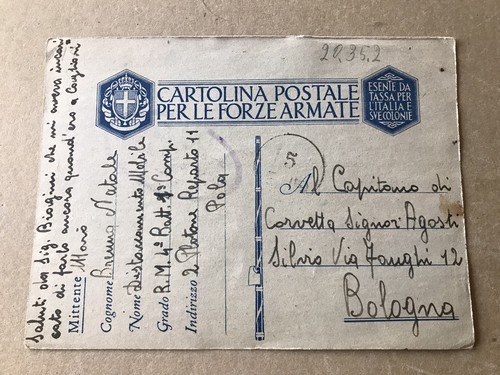 20.35.2
CARTOLINA POSTALE
PER LE FORZE ARMATE
ESENTE DA
TASSA PER
L'ITALIA E
SVE COLONIE
Saluti da Sig. Biagini che mi aveva incari=
cato di farlo ancora quand'ero a Cagliari
Mittente Marò
Cognome Brenna Natale
Nome Distaccamento Mobile
Grado R.M. 4º Batt 1ª Comp.
Indirizzo 2 Plotone Reparto 11
Pola
5
Al Capitano di
Corvetta Signor Agosti
Silvio Via Zanghi 12
Bologna